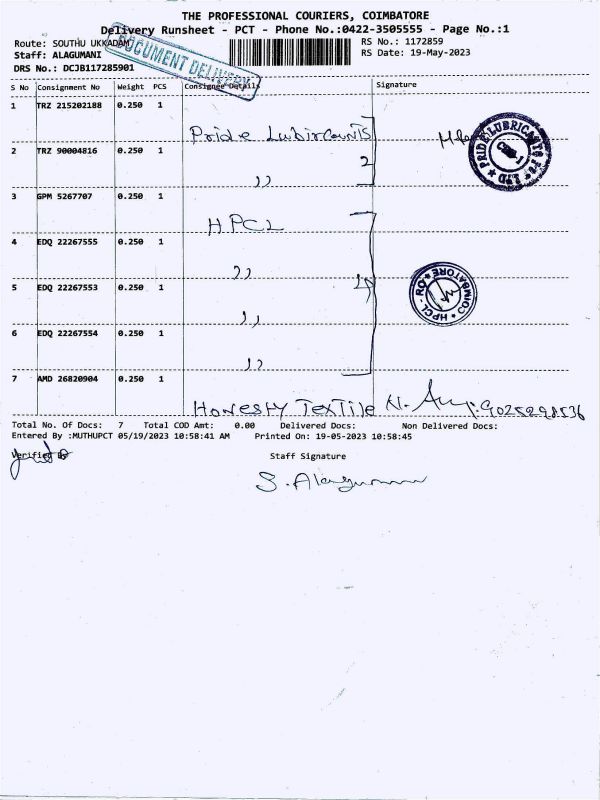 THE PROFESSIONAL COURIERS, COIMBATORE
Delivery Runsheet - PCT - Phone No.:0422-3505555 - Page No.:1
Route: SOUTHU UKKADAM RS No.: 1172859
Staff: ALAGUMANI RS Date: 19-May-2023
DOCUMENT DELIVERY
DRS No.: DCJB117285901
S No Consignment No Weight PCS Consignee Details Signature
1 TRZ 215202188 0.250 1
Pride Lubircounts
PRIDE LUBRICANTS PVT LTD
2 TRZ 90004816 0.250 1 2
,,
3 GPM 5267707 0.250 1
HPCL
4 EDQ 22267555 0.250 1
,,
4
HPCL - RO COIMBATORE
5 EDQ 22267553 0.250 1
,,
6 EDQ 22267554 0.250 1
,,
7 AMD 26820904 0.250 1
Honesty Textile N. 9025298536
Total No. Of Docs: 7 Total COD Amt: 0.00 Delivered Docs: Non Delivered Docs:
Entered By :MUTHUPCT 05/19/2023 10:58:41 AM Printed On: 19-05-2023 10:58:45
Verified By Staff Signature
S. Alagumani